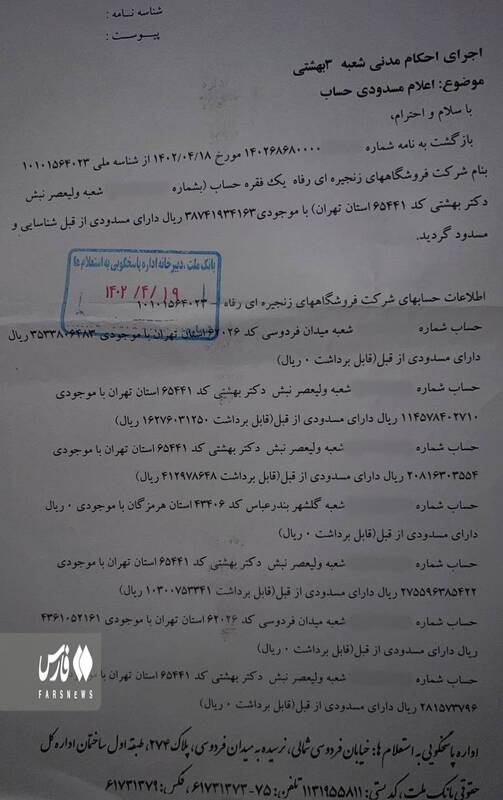 شناسه نامه :
پیوست :
اجرای احکام مدنی شعبه ۳بهشتی
موضوع: اعلام مسدودی حساب
با سلام و احترام،
بازگشت به نامه شماره ۱۴۰۲۶۸۶۸۰۰۰۰ مورخ ۱۴۰۲/۰۴/۱۸ از شناسه ملی ۱۰۱۰۱۵۶۴۰۲۳
بنام شرکت فروشگاههای زنجیره ای رفاه یک فقره حساب (بشماره شعبه ولیعصر نبش
دکتر بهشتی کد ۶۵۴۴۱ استان تهران) با موجودی۳۸۷۴۱۹۳۴۱۶۳ ریال دارای مسدودی از قبل شناسایی و
مسدود گردید.
بانک ملت ،دبیرخانه اداره پاسخگویی به استعلام ها
۱۴۰۲ /۴/ ۱۹
اطلاعات حسابهای شرکت فروشگاههای زنجیره ای رفاه - ۱۰۱۰۱۵۶۴۰۲۳
حساب شماره شعبه میدان فردوسی کد ۶۲۰۲۶ استان تهران با موجودی ۳۵۳۳۸۰۶۴۸۳ ریال
دارای مسدودی از قبل(قابل برداشت ۰ ریال)
حساب شماره شعبه ولیعصر نبش دکتر بهشتی کد ۶۵۴۴۱ استان تهران با موجودی
۱۱۴۵۷۸۴۰۲۷۱۰ ریال دارای مسدودی از قبل(قابل برداشت ۱۶۲۷۶۰۳۱۲۵۰ ریال)
حساب شماره شعبه ولیعصر نبش دکتر بهشتی کد ۶۵۴۴۱ استان تهران با موجودی
۲۰۸۱۶۳۰۳۵۵۴ ریال دارای مسدودی از قبل(قابل برداشت ۴۱۲۹۷۸۶۴۸ ریال)
حساب شماره شعبه گلشهر بندرعباس کد ۴۳۴۰۶ استان هرمزگان با موجودی ۰ ریال
دارای مسدودی از قبل(قابل برداشت ۰ ریال)
حساب شماره شعبه ولیعصر نبش دکتر بهشتی کد ۶۵۴۴۱ استان تهران با موجودی
۲۷۵۵۹۶۳۸۵۴۲۲ ریال دارای مسدودی از قبل(قابل برداشت ۱۰۳۰۰۷۵۳۳۴۱ ریال)
حساب شماره شعبه میدان فردوسی کد ۶۲۰۲۶ استان تهران با موجودی ۴۳۶۱۰۵۲۱۶۱
ریال دارای مسدودی از قبل(قابل برداشت ۰ ریال)
حساب شماره شعبه ولیعصر نبش دکتر بهشتی کد ۶۵۴۴۱ استان تهران با موجودی
۲۸۱۵۷۳۷۹۶ ریال دارای مسدودی از قبل(قابل برداشت ۰ ریال)
فارس
FARSNEWS
اداره پاسخگویی به استعلام ها: خیابان فردوسی شمالی، نرسیده به میدان فردوسی، پلاک ۲۷۴، طبقه اول ساختمان اداره کل
حقوقی بانک ملت، کد پستی: ۱۱۳۱۹۵۵۸۱۱ تلفن: ۷۵-۶۱۷۳۱۳۷۳ ، فکس: ۶۱۷۳۱۳۷۹